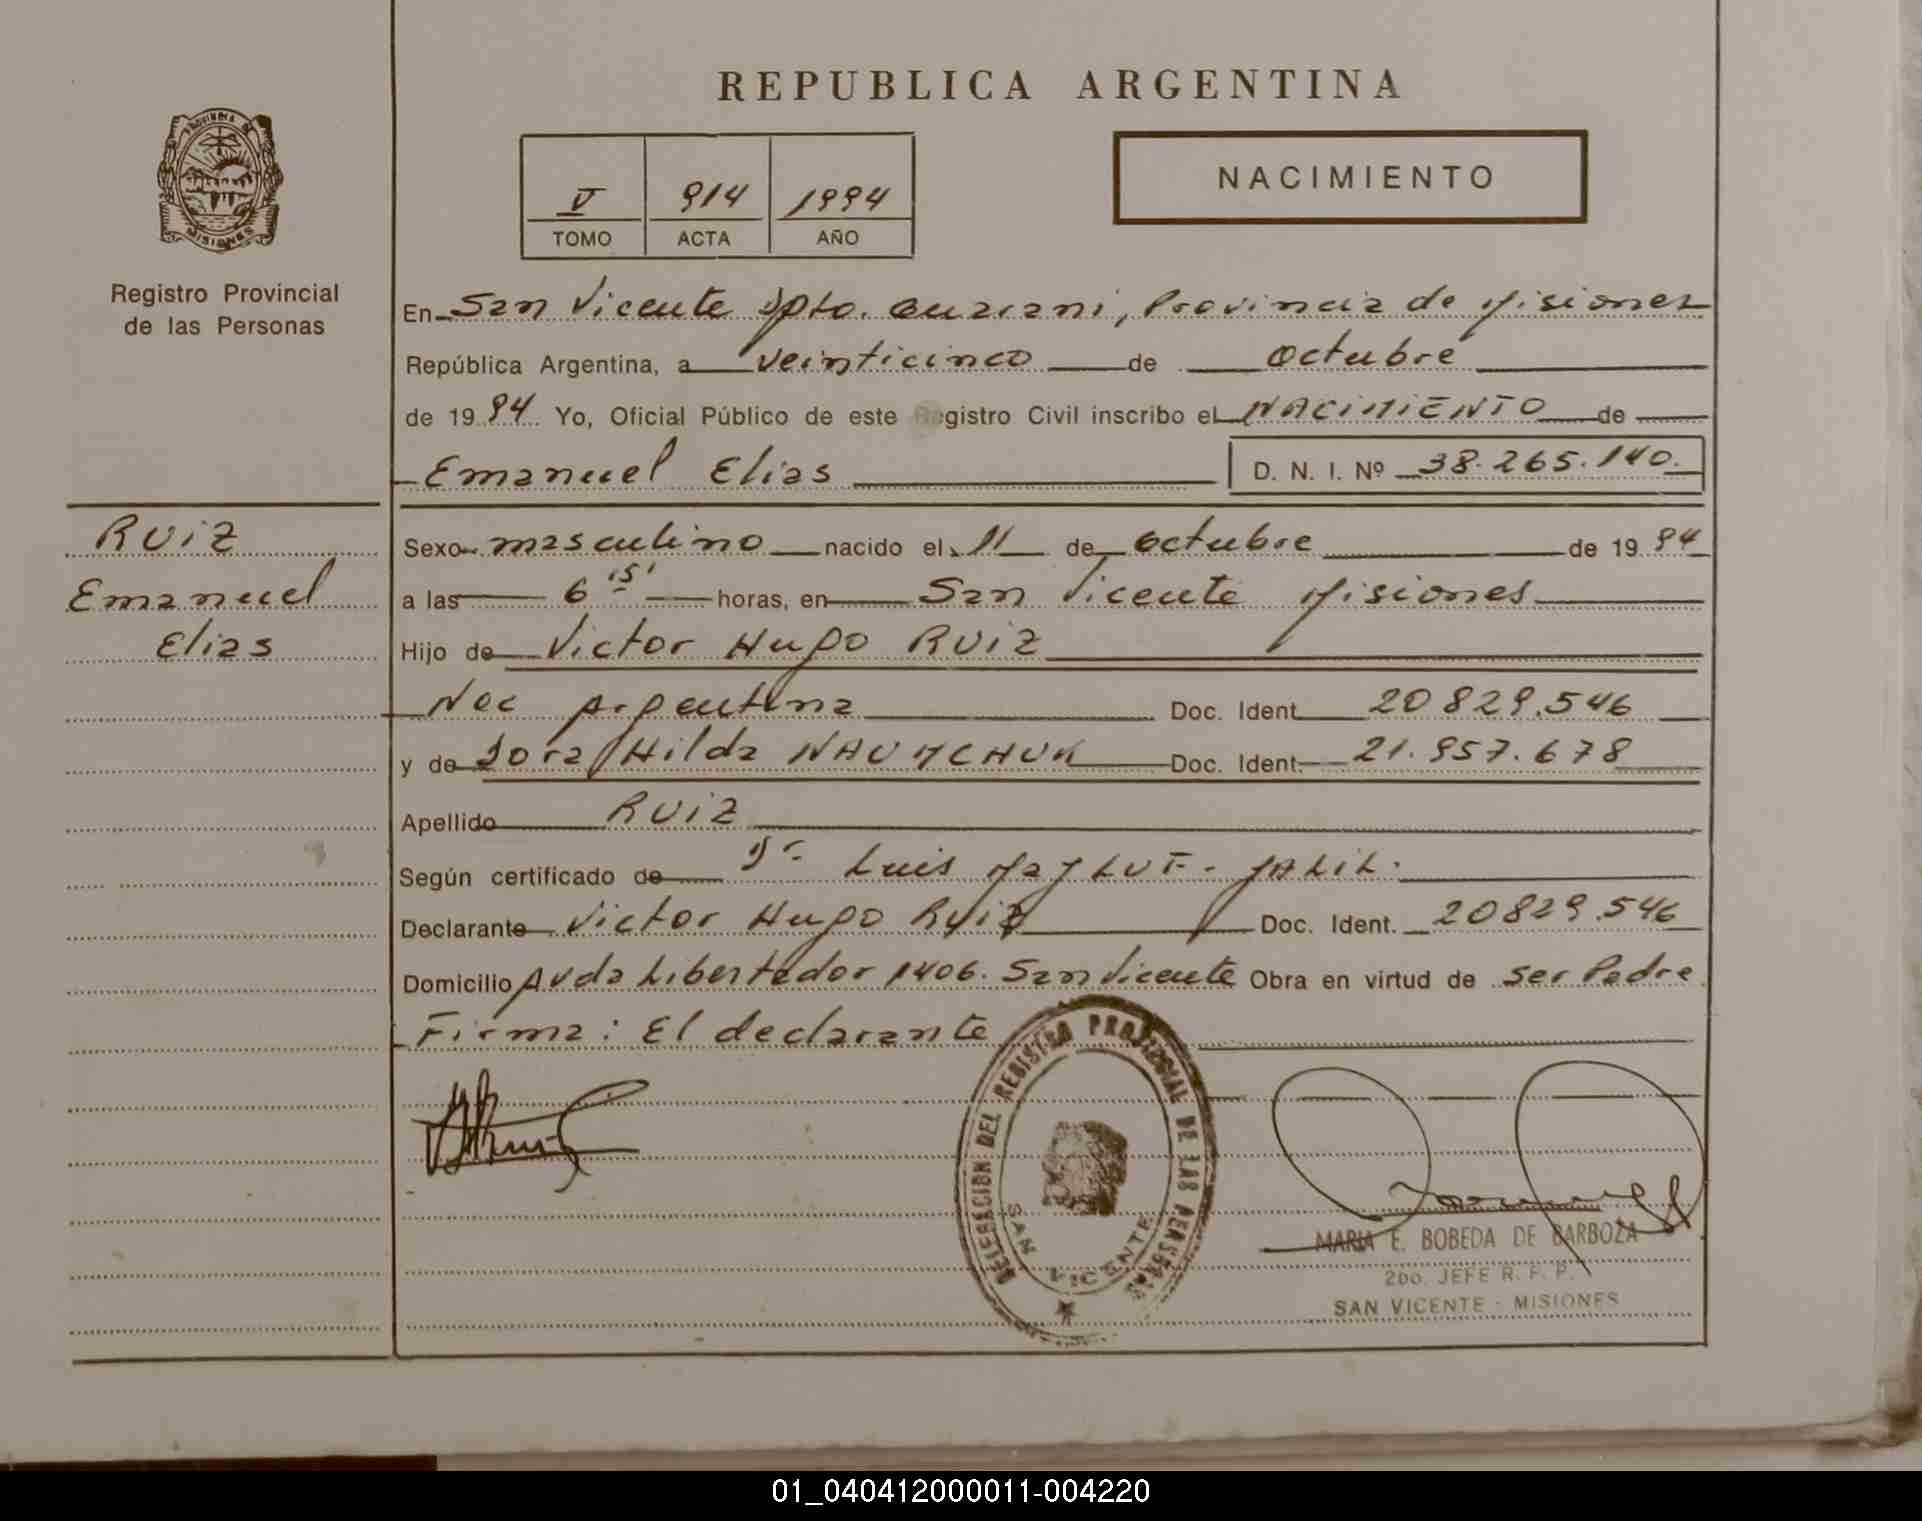 REPUBLICA ARGENTINA
PROVINCIA DE
MISIONES
Registro Provincial
de las Personas
V 914 1994
TOMO ACTA AÑO
NACIMIENTO
En San Vicente Dpto. Guarani, Provincia de Misiones
República Argentina, a veinticinco de octubre
de 19 94 Yo, Oficial Público de este Registro Civil inscribo el NACIMIENTO de
Emanuel Elias D. N. I. Nº 38.265.140.
RUIZ
Emanuel
Elias
Sexo masculino nacido el 11 de octubre de 19 94
a las 6 15' horas, en San Vicente Misiones
Hijo de Victor Hugo RUIZ
Nac Argentina Doc. Ident. 20829.546
y de Dora Hilda NAUMCHUK Doc. Ident. 21.957.678
Apellido RUIZ
Según certificado de Dr. Luis JALIL.
Declarante Victor Hugo Ruiz Doc. Ident. 20829.546
Domicilio Avda Libertador 1406. San Vicente Obra en virtud de ser Padre
Firma: El declarante
DELEGACION DEL REGISTRO PROVINCIAL DE LAS PERSONAS
SAN VICENTE
MARIA E. BOBEDA DE BARBOZA
2do. JEFE R. P. P.
SAN VICENTE - MISIONES
01_040412000011-004220